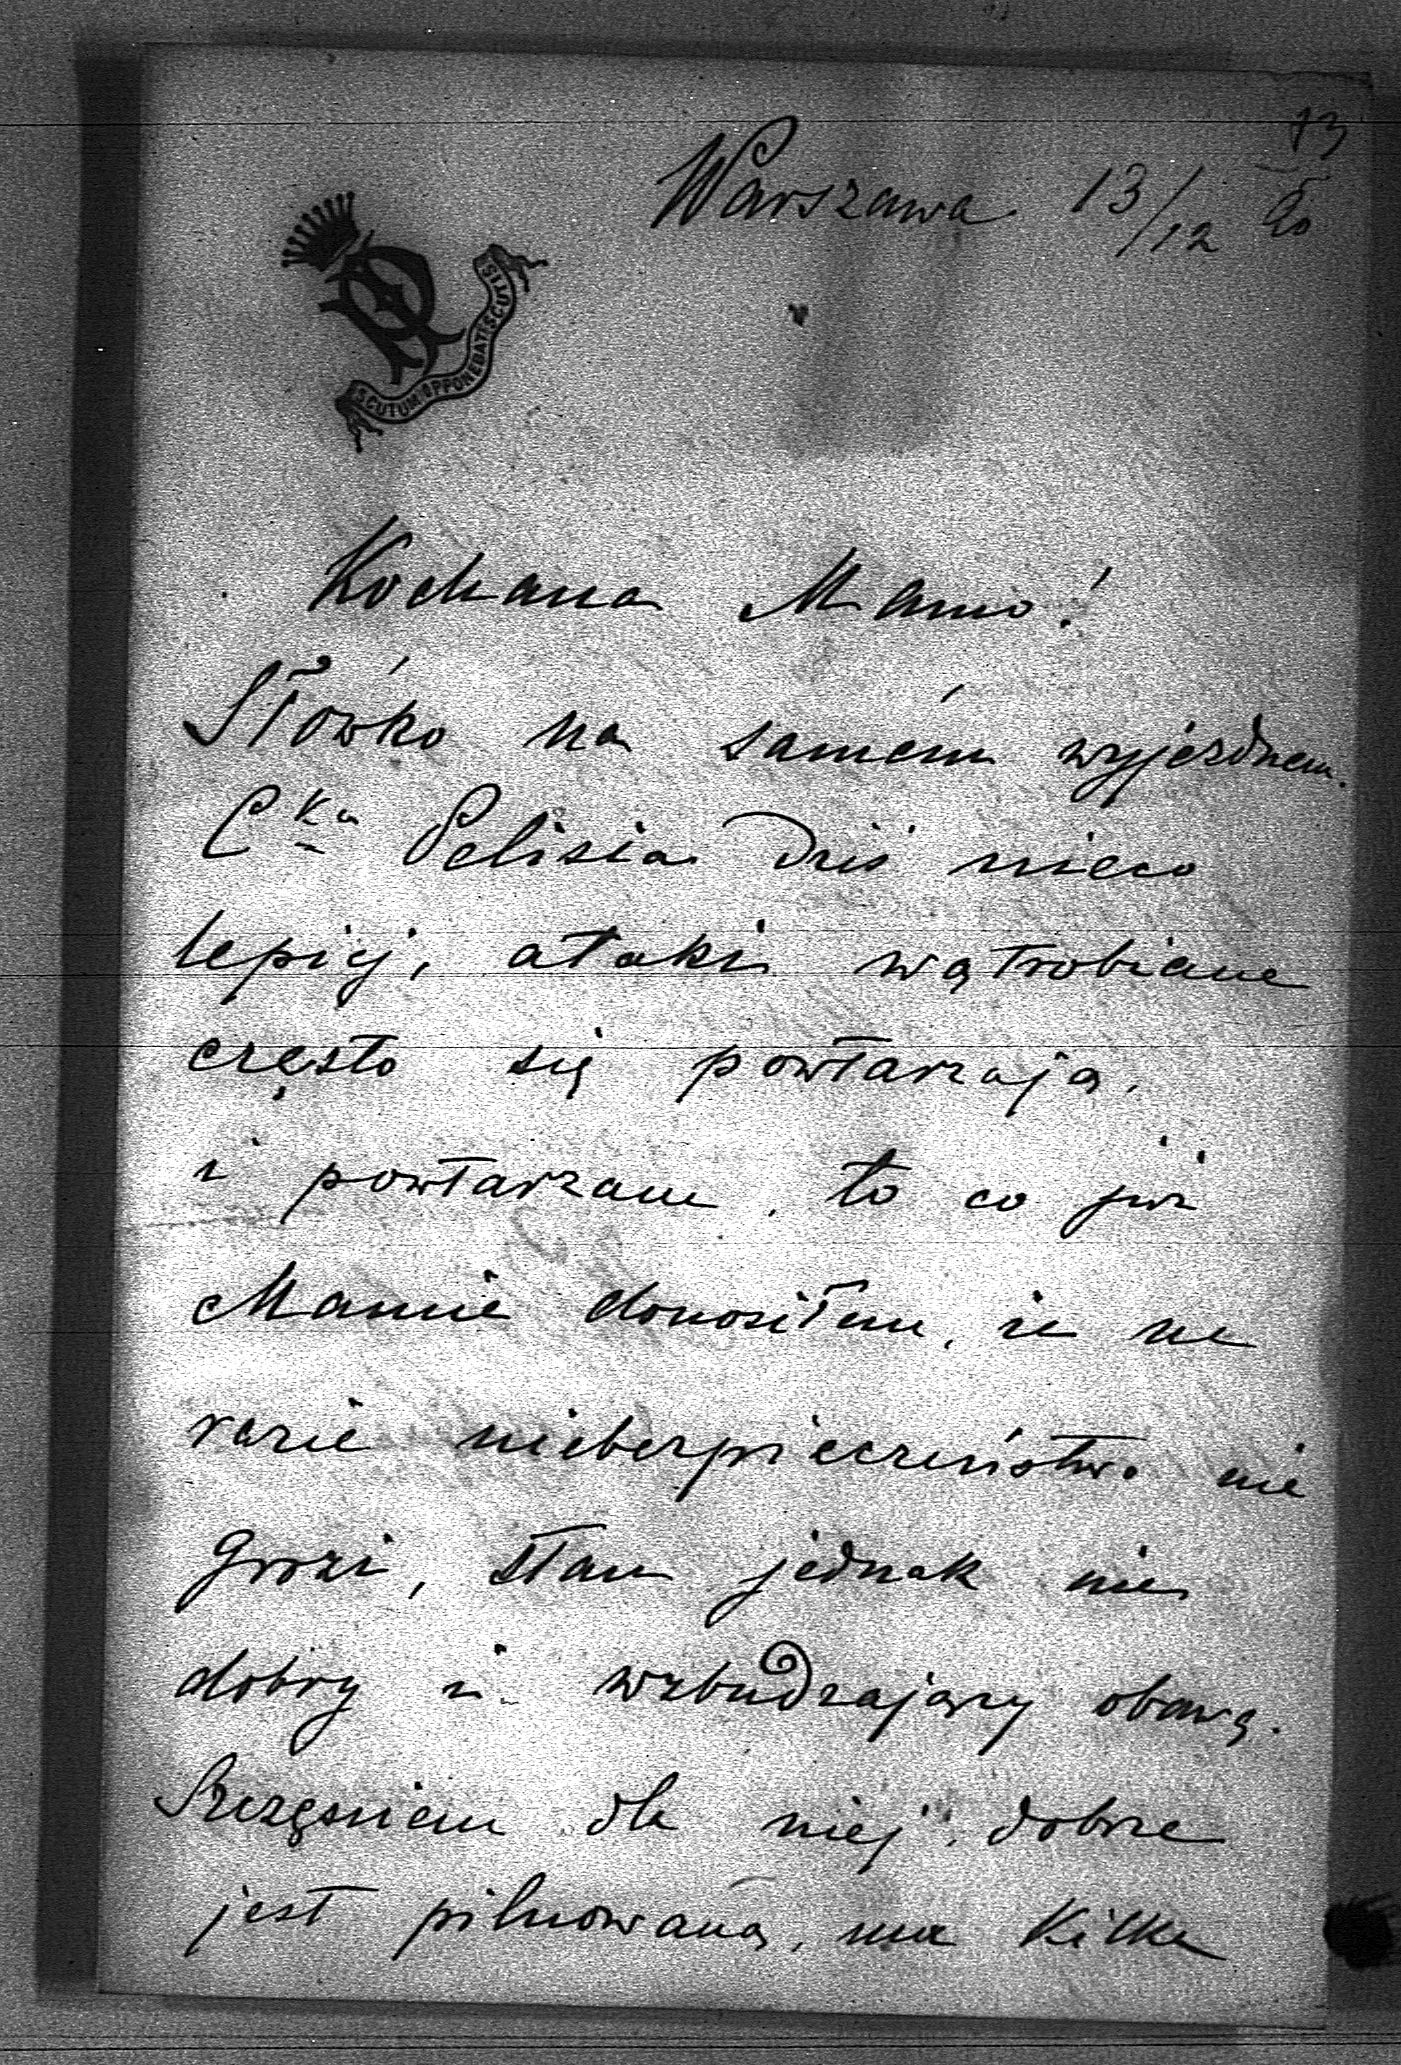 13
Warszawa 13/12
SCUTUM OPPONEBAT SCUTIS
Kochana Mamo!
Słówko na samém wyjezdnem.
C^ka Pelisia dziś nieco
lepiej, ataki wątrobiane
często się powtarzają,
i powtarzam, to co już
Mamie donosiłem, że na
razie niebezpieczeństwo nie
grozi, stan jednak nie
dobry i wzbudzający obawę.
Szczęściem dla niej, dobrze
jest pilnowaną, ma kilka